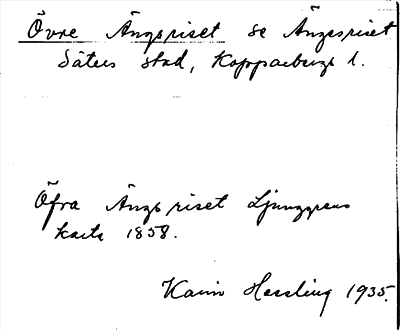 Övre Ängsriset se Ängesriset
Säters stad, Kopparbergs l.
Öfra Ängs riset Ljunggrens
karta 1858.
Karin Hessling 1935.